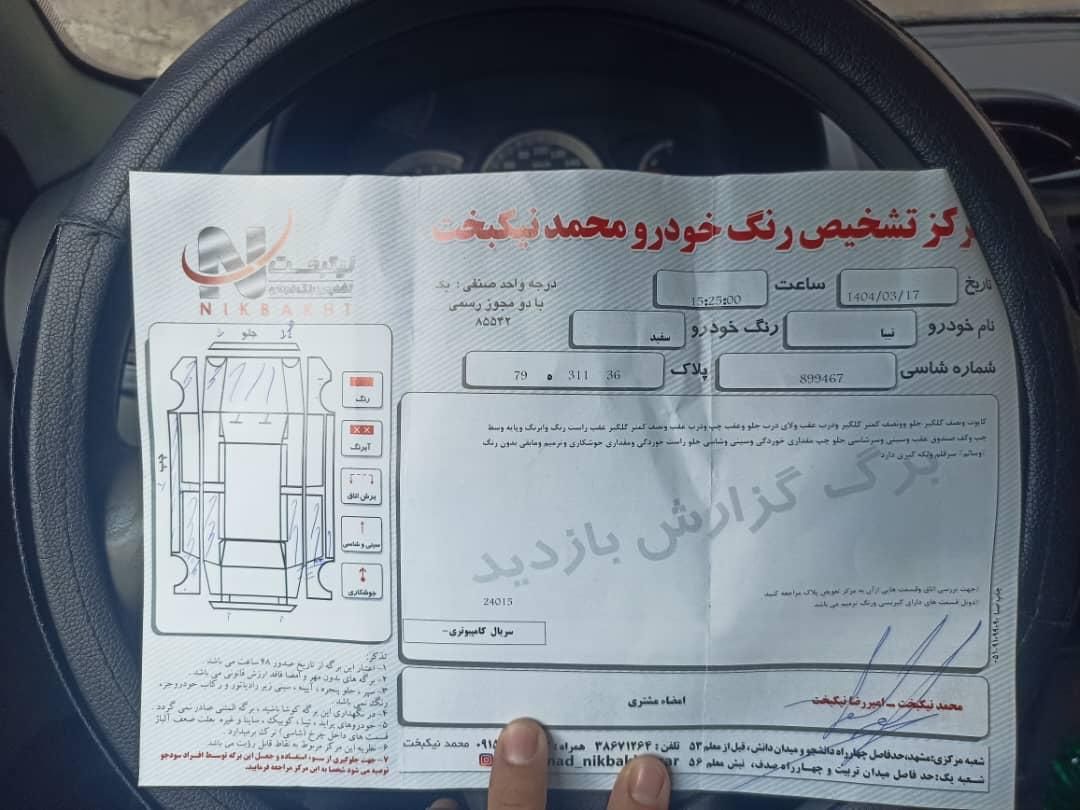 رکز تشخیص رنگ خودرو محمد نیکبخت
نیکبخت
NIKBAKHT
درجه واحد صنفی : یک
با دو مجوز رسمی
۸۵۵۴۲
تاریخ 1404/03/17 ساعت 15:25:00
نام خودرو تیبا رنگ خودرو سفید
شماره شاسی 899467 پلاک 36 311 ه 79
جلو
چپ
رنگ
آبرنگ
برش اتاق
سینی و شاسی
جوشکاری
کاپوت ونصف گلگیر جلو وونصف کمتر گلگیر ودرب عقب ولای درب جلو وعقب چپ ودرب عقب ونصف کمتر گلگیر عقب راست رنگ وابرنگ وپایه وسط
چپ وکف صندوق عقب وسینی وسرشاسی جلو چپ مقداری خوردگی وسینی وشاسی جلو راست خوردگی ومقداری جوشکاری و ترمیم ومابقی بدون رنگ
/وسائم/ سرقلم ولکه گیری دارد
برگ گزارش بازدید
/جهت بررسی اتاق وقسمت هایی ازآن به مرکز تعویض پلاک مراجعه کنید
24015
سریال کامپیوتری-
محمد نیکبخت - امیررضا نیکبخت
امضاء مشتری
تذکر:
۱- اعتبار این برگه از تاریخ صدور ۴۸ ساعت می باشد.
۲- برگه های بدون مهر و امضا فاقد ارزش قانونی می باشد.
۳- سپر ، جلو پنجره ، آیینه ، سینی زیر رادیاتور و رکاب خودرو جزء
رنگ نمی باشد.
۴- در نگهداری این برگه کوشا باشید ، برگه المثنی صادر نمی گردد.
۵- خودروهای پراید ، تیبا ، کوییک ، ساینا و غیره بعلت ضعف آلیاژ
قسمت های داخل چرخ (شاسی) ترک برمیدارد.
۶- نظریه این مرکز مربوط به نقاط قابل رؤیت می باشد.
۷- جهت جلوگیری از سوء استفاده و جعل این برگه توسط افراد سودجو
توصیه می شود شخصا به این مرکز مراجعه فرمایید.
شعبه مرکزی:مشهد،حدفاصل چهارراه دانشجو و میدان دانش، قبل از معلم ۵۳ تلفن: ۳۸۶۷۱۲۶۴ همراه: ۰۹۱۵ محمد نیکبخت
شعبه یک:حد فاصل میدان تربیت و چهارراه صدف، نبش معلم ۵۶